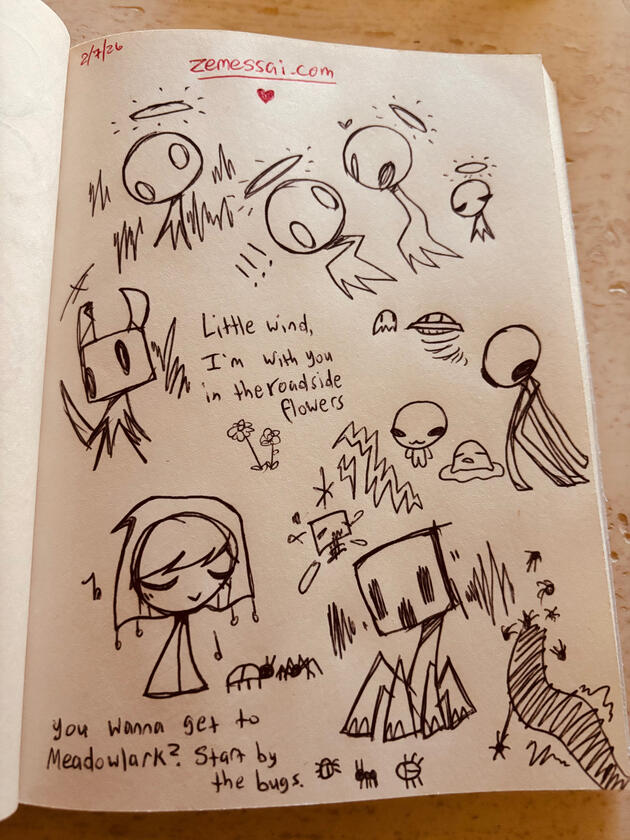 2/7/26
zemessai.com
Little wind,
I'm with you
in the roadside
flowers
You wanna get to
Meadowlark? Start by
the bugs.